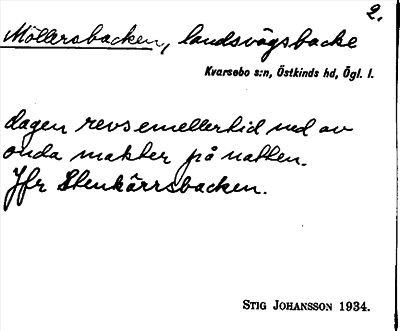 2.
Möllersbacken, landsvägsbacke
Kvarsebo s:n, Östkinds hd, Ögl. l.
dagen revs emellertid ned av
onda makter på natten.
Jfr Stenkärrsbacken.
STIG JOHANSSON 1934.